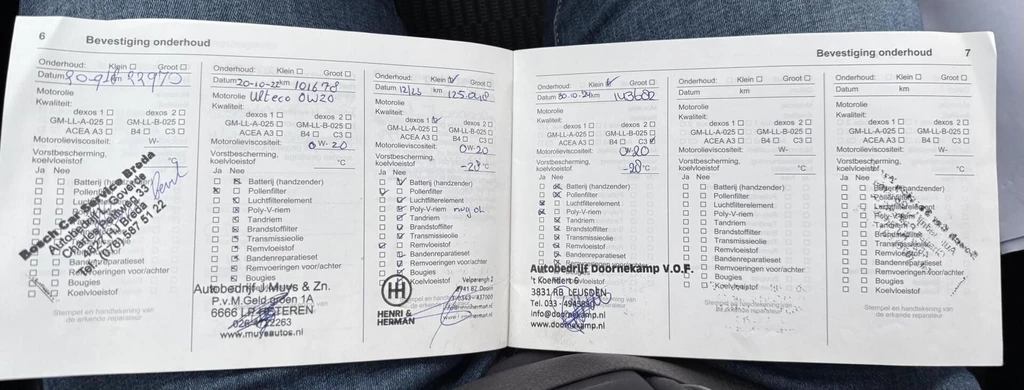 6 Bevestiging onderhoud
Onderhoud: Klein □ Groot □
Datum km
Motorolie
Kwaliteit:
dexos 1 □ dexos 2 □
GM-LL-A-025 □ GM-LL-B-025 □
ACEA A3 □ B4 □ C3 □
Motorolieviscositeit: W-
Vorstbescherming,
koelvloeistof °C
Ja Nee
□ □ Batterij (handzender)
Bosch Car Service Breda
Autobedrijf L. Goverde
Tel. (076) 587 51 22
Onderhoud: Klein □ Groot □
Datum 20-10-22 km 101678
Motorolie Ulteco 0W20
Kwaliteit:
dexos 1 □ dexos 2 □
GM-LL-A-025 □ GM-LL-B-025 □
ACEA A3 □ B4 □ C3 □
Motorolieviscositeit: 0W-20
Vorstbescherming,
koelvloeistof °C
Ja Nee
Batterij (handzender)
Pollenfilter
Luchtfilterelement
Poly-V-riem
Tandriem
Brandstoffilter
Transmissieolie
Remvloeistof
Bandenreparatieset
Remvoeringen voor/achter
Bougies
Autobedrijf J. Muys & Zn.
P.v.M.Geld
6666
www.muysautos.nl
Onderhoud: Klein Groot □
Datum 12/23 km
Motorolie
Kwaliteit:
dexos 1 dexos 2 □
GM-LL-A-025 □ GM-LL-B-025 □
ACEA A3 □ B4 □ C3 □
Motorolieviscositeit: 0W-20
Vorstbescherming,
koelvloeistof -28 °C
Ja Nee
Batterij (handzender)
Pollenfilter
Luchtfilterelement
Poly-V-riem
Tandriem
Brandstoffilter
Transmissieolie
Remvloeistof
Bandenreparatieset
Remvoeringen voor/achter
Bougies
HENRI &
HERMAN
Bevestiging onderhoud 7
Onderhoud: Klein Groot □
Datum 30-10-24 km 143682
Motorolie
Kwaliteit:
dexos 1 □ dexos 2 □
GM-LL-A-025 □ GM-LL-B-025 □
ACEA A3 □ B4 □ C3
Motorolieviscositeit: 0W20
Vorstbescherming,
koelvloeistof °C
Ja Nee
Batterij (handzender)
Pollenfilter
Luchtfilterelement
Poly-V-riem
Tandriem
Brandstoffilter
Transmissieolie
Remvloeistof
Bandenreparatieset
Remvoeringen voor/achter
Autobedrijf Doornekamp V.O.F.
't Koendert 6
3831 RB LEUSDEN
Tel. 033 -
info@doornekamp.nl
www.doornekamp.nl
Onderhoud: Klein □ Groot □
Datum km
Motorolie
Kwaliteit:
dexos 1 □ dexos 2 □
GM-LL-A-025 □ GM-LL-B-025 □
ACEA A3 □ B4 □ C3 □
Motorolieviscositeit: W-
Vorstbescherming,
koelvloeistof °C
Ja Nee
□ □ Batterij (handzender)
□ □ Pollenfilter
□ □ Luchtfilterelement
□ □ Poly-V-riem
□ □ Tandriem
□ □ Brandstoffilter
□ □ Transmissieolie
□ □ Remvloeistof
□ □ Bandenreparatieset
□ □ Remvoeringen voor/achter
□ □ Bougies
□ □ Koelvloeistof
Stempel en handtekening van
de erkende reparateur
Onderhoud: Klein □ Groot □
Datum km
Motorolie
Kwaliteit:
dexos 1 □ dexos 2 □
GM-LL-A-025 □ GM-LL-B-025 □
ACEA A3 □ B4 □ C3 □
Motorolieviscositeit: W-
Vorstbescherming,
koelvloeistof °C
Ja Nee
□ □ Batterij (handzender)
□ □ Pollenfilter
□ □ Luchtfilterelement
□ □ Poly-V-riem
□ □ Tandriem
□ □ Brandstoffilter
□ □ Transmissieolie
□ □ Remvloeistof
□ □ Bandenreparatieset
□ □ Remvoeringen voor/achter
□ □ Bougies
□ □ Koelvloeistof
Stempel en handtekening van
de erkende reparateur